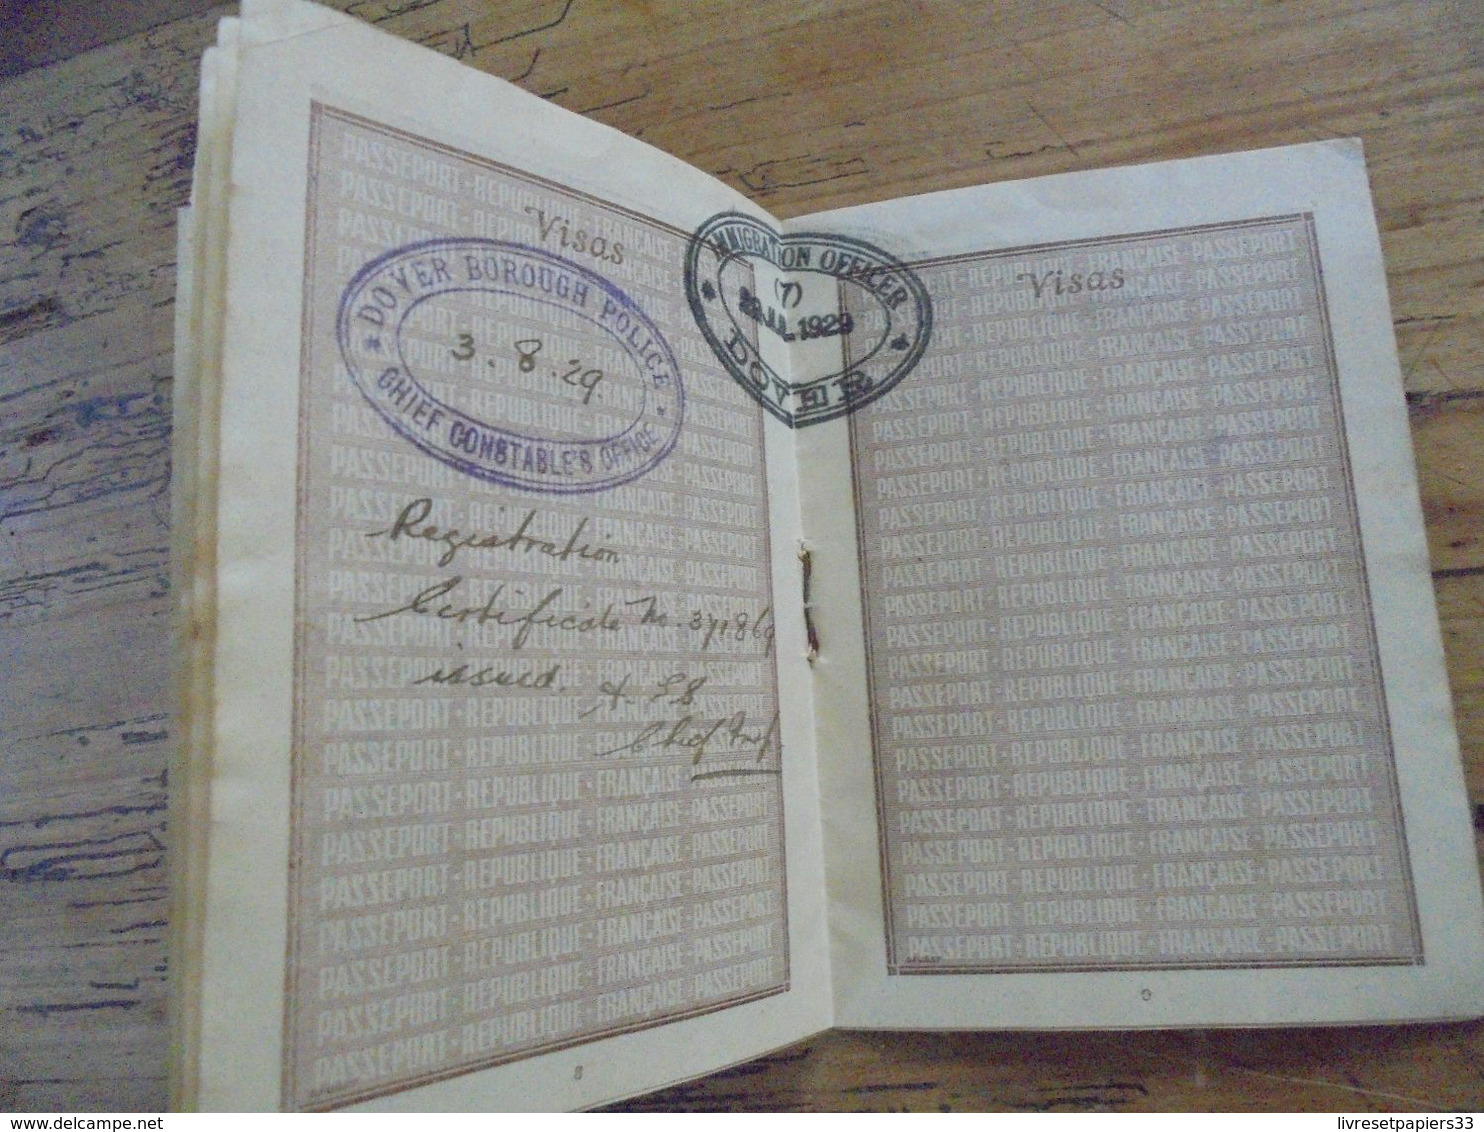 Visas
DOVER BOROUGH POLICE
3.8.29.
CHIEF CONSTABLE'S OFFICE
Registration
Certificate No.
issued.
Chief
8
IMMIGRATION OFFICER
(7)
JUL 1929
DOVER
Visas
PASSEPORT - REPUBLIQUE - FRANÇAISE - PASSEPORT
9
delcampe.net
livresetpapiers33